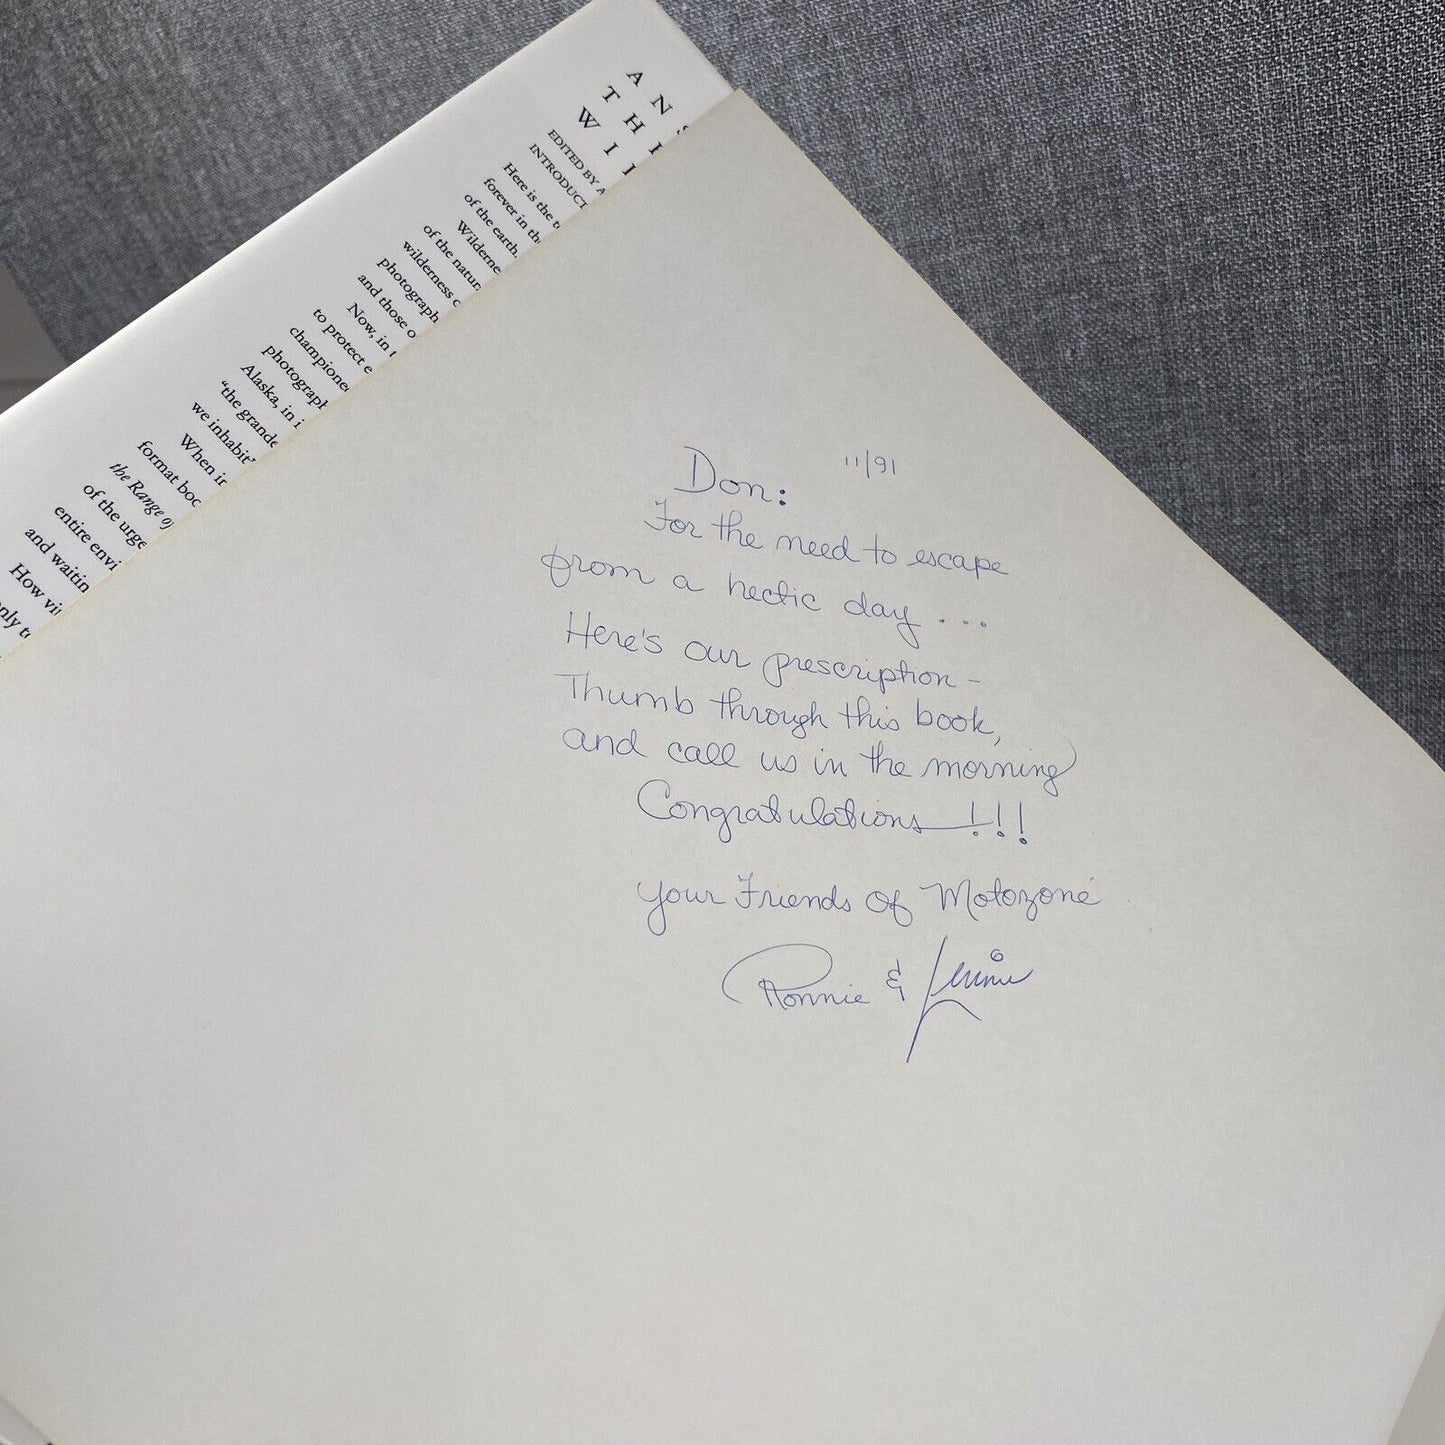 A N S
T H
W I
EDITED BY A
INTRODUCT
Here is the t
forever in th
of the earth,
Wilderne
of the natur
wilderness c
photograph
and those o
Now, in t
to protect e
championed
photograph
Alaska, in i
"the grande
we inhabit"
When in
format boo
the Range of
of the urge
entire envi
and waitin
How vi
only to
11/91
Don:
For the need to escape
from a hectic day ...
Here's our prescription -
Thumb through this book,
and call us in the morning
Congratulations !!!
Your Friends of Motozoné
Ronnie &